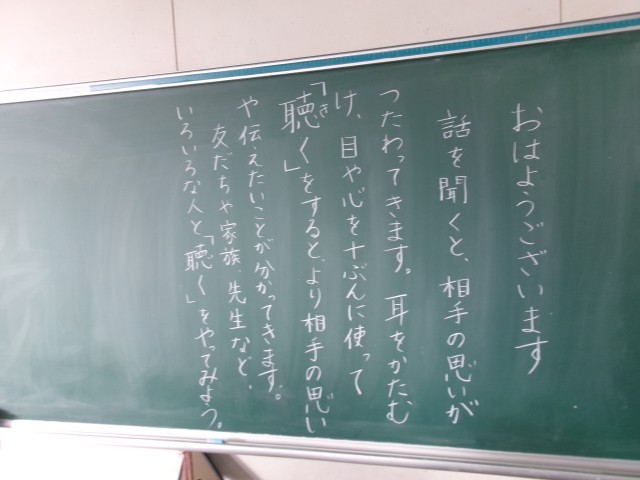 おはようございます
話を聞くと、相手の思いが
つたわってきます。耳をかたむ
け、目や心を十ぶんに使って
「聴く」をすると、より相手の思い
や伝えたいことが分かってきます。
友だちや家族、先生など、
いろいろな人と「聴く」をやってみよう。